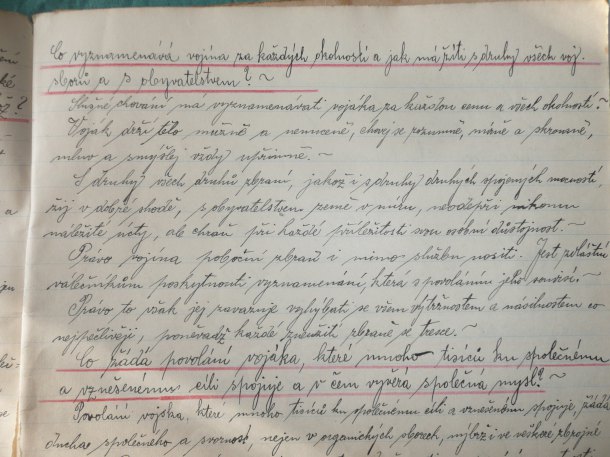 Co vyznamenává vojína za každých okolností a jak má žíti s druhy všech voj.
sborů a s obyvatelstvem? ~
Slušné chování má vyznamenávat vojáka za každou cenu a všech okolností. ~
Voják drží tělo mužně a nenuceně, chovej se rozumně, mírně a skromně,
mluv a smýšlej vždy upřímně. ~
S druhy všech druhů zbraní, jakož i s druhy druhých spojených mocností,
žij v dobré shodě, s obyvatelstvem země v míru, neodepři nikomu
náležité úcty, ale chraň při každé příležitosti svou osobní důstojnost. ~
Právo vojína poboční zbraň i mimo službu nositi. Jest zvláštní
válečníkům poskytnutí vyznamenání, která s povoláním jeho souvisí. ~
Právo to však jej zavazuje vyhýbati se všem výtržnostem a násilnostem co
nejpečlivěji, poněvadž každé zneužití zbraně se tresce. ~
Co žádá povolání vojáka, které mnoho tisíců ku společnému
a vznešenému cíli spojuje a v čem vyvěrá společná mysl? ~
Povolání vojska, které mnoho tisíců ku společnému cíli a vznešenému spojuje, žádá
ducha společného a svornost nejen v organických sborech, nýbrž i ve veškeré zbrojné